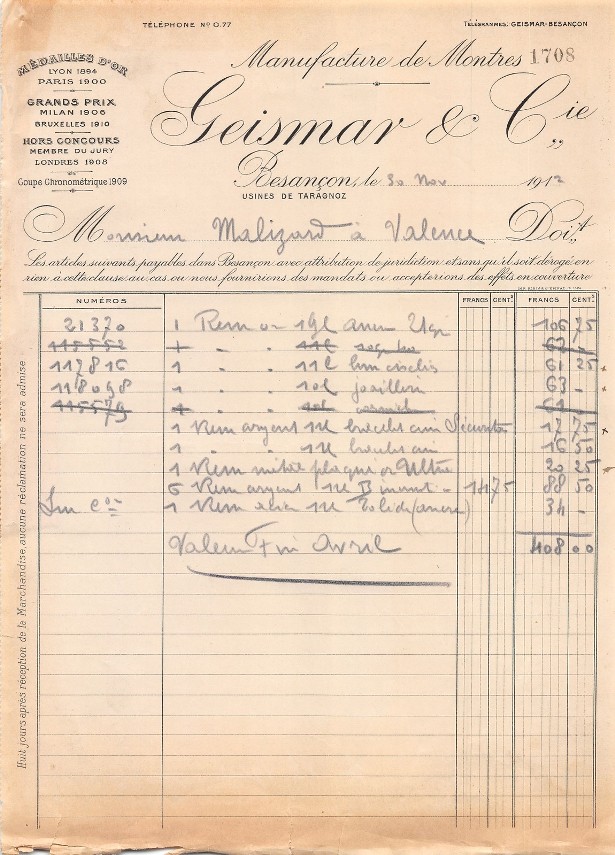 TÉLÉPHONE No 0.77
TÉLÉGRAMMES: GEISMAR-BESANÇON
MÉDAILLES D'OR
LYON 1894
PARIS 1900
GRANDS PRIX
MILAN 1906
BRUXELLES 1910
HORS CONCOURS
MEMBRE DU JURY
LONDRES 1908
Coupe Chronométrique 1909
Manufacture de Montres 1708
Geismar & Cie
Besançon, le 30 Nov 1912
USINES DE TARAGNOZ
Monsieur Malizard à Valence Doit
Les articles suivants payables dans Besançon avec attribution de juridiction et sans qu'il soit dérogé en
rien à cette clause au cas ou nous fournirions des mandats ou accepterions des effets en couverture
NUMÉROS FRANCS CENTS FRANCS CENTS
21370 1 Rem or 19L 106 75
115552 1 " " 11L 62 -
117816 1 " " 11L 61 25
118098 1 " " 10L 63 -
115579 1 " " 10L 61 -
1 Rem argent 11L 17 75
1 " " 11L 16 50
1 Rem métal plaqué or Ultra 20 25
6 Rem argent 11L 14 75 88 50
1 Rem acier 11L 34 -
Valeur Fin Avril 408 00
Huit jours après réception de la Marchandise, aucune réclamation ne sera admise